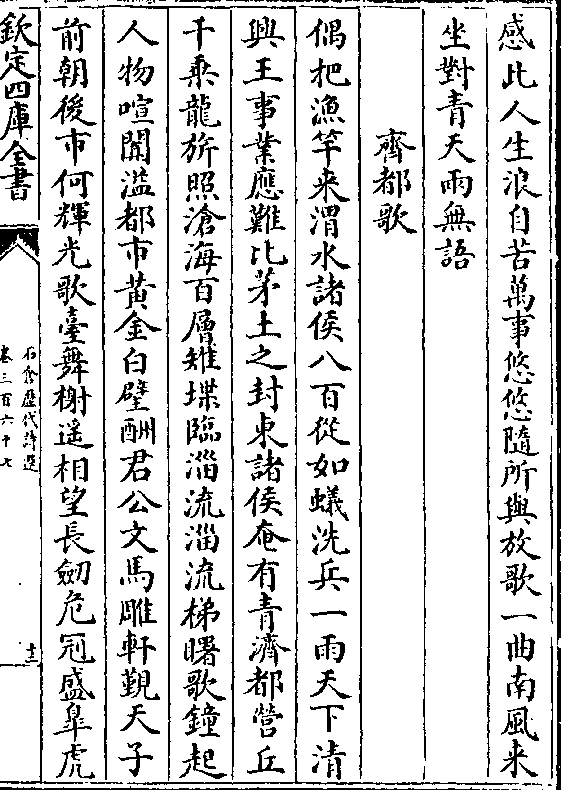 感此人生浪自苦萬事悠悠隨所與放歌一曲南風来
坐對青天兩無語
齊都歌
偶把漁竿来渭水諸侯八百從如蟻洗兵一雨天下清
興王事業應難比茅土之封東諸侯奄有青濟都營丘
千乘龍旂照滄海百層雉堞臨淄流淄流梯曙歌鐘起
人物喧闐溢都市黄金白璧酬君公文馬雕軒覲天子
前朝後市何輝光歌臺舞榭遥相望長劒危冠盛臯虎
欽定四庫全書
石倉歷代詩選
卷三百六十七
十三